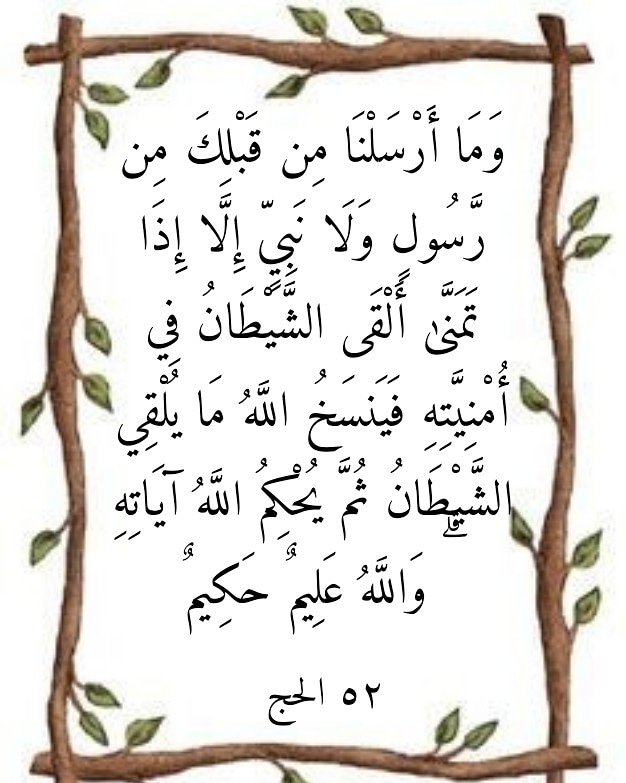 وَمَا أَرْسَلْنَا مِن قَبْلِكَ مِن
رَّسُولٍ وَلَا نَبِيٍّ إِلَّا إِذَا
تَمَنَّىٰ أَلْقَى الشَّيْطَانُ فِي
أُمْنِيَّتِهِ فَيَنسَخُ اللَّهُ مَا يُلْقِي
الشَّيْطَانُ ثُمَّ يُحْكِمُ اللَّهُ آيَاتِهِ ۗ
وَاللَّهُ عَلِيمٌ حَكِيمٌ
٥٢ الحج